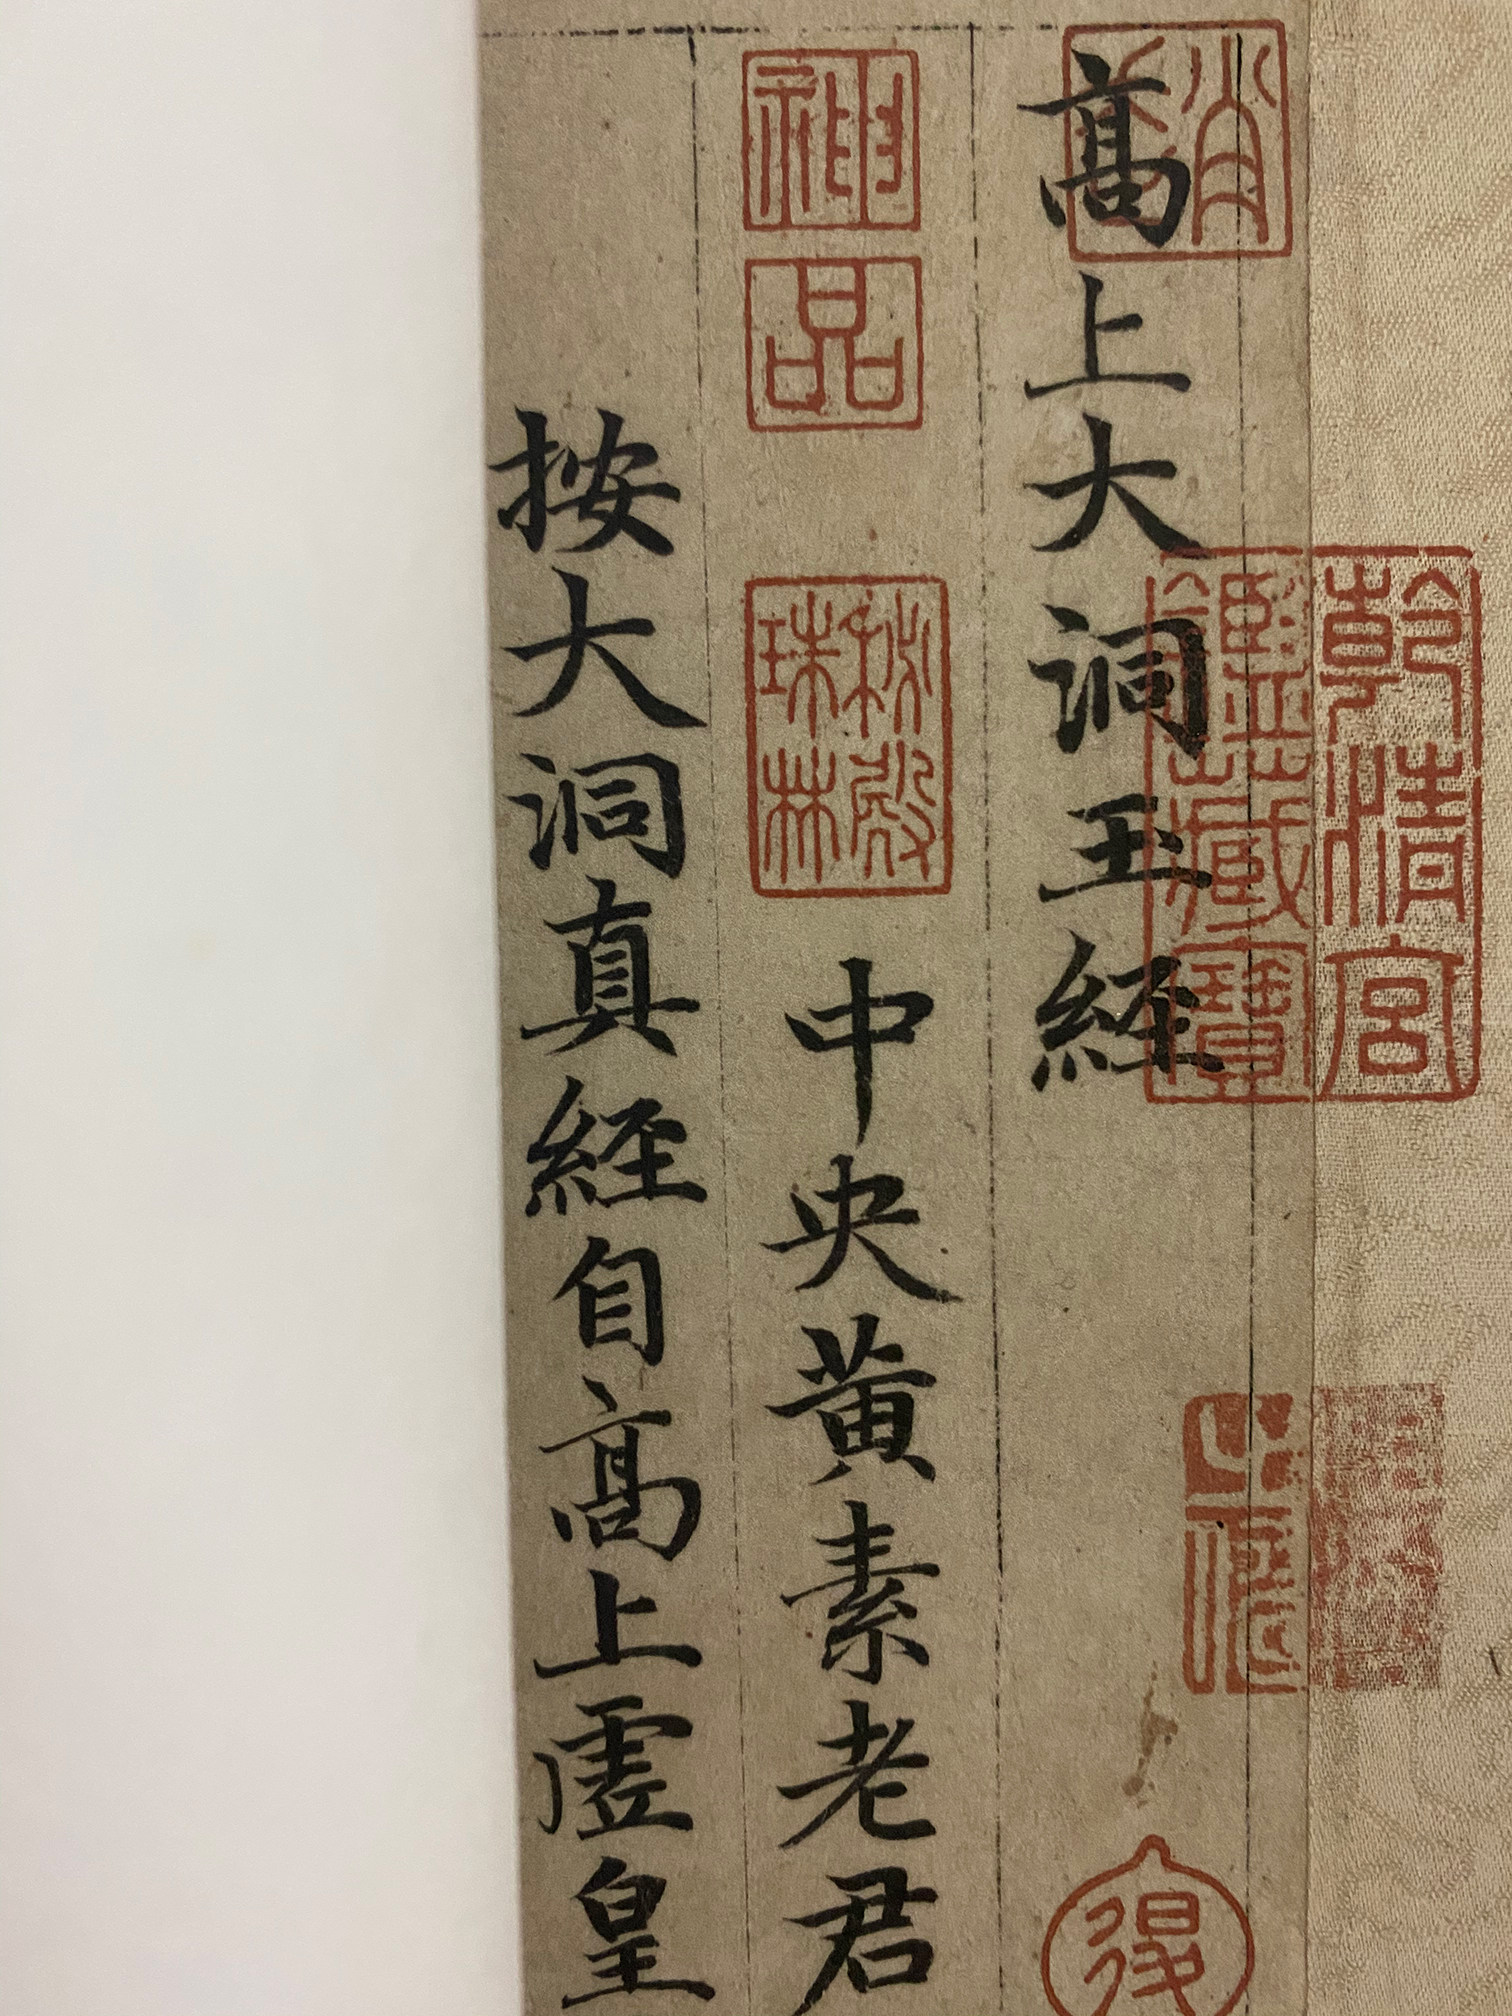 高上大洞玉経
中央黄素老君
按大洞真経自高上虚皇
乾清宮
鑑藏寶
神
品
秘殿
珠林